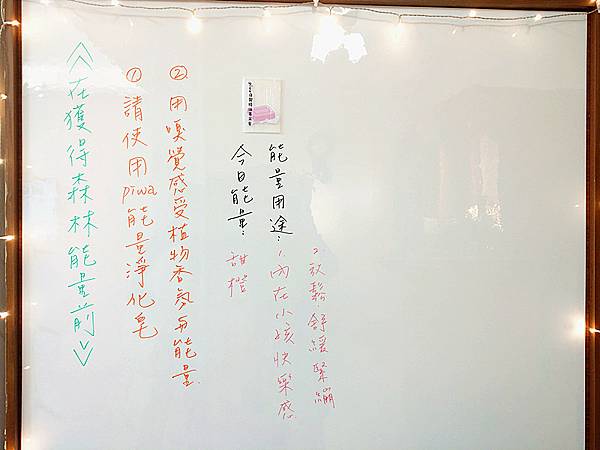 《在獲得森林能量前》
① 請使用piwa能量淨化皂
② 用嗅覺感受植物香氛与能量.
今日能量： 甜橙
能量用途： 1.內在小孩快樂感
2.放鬆.舒緩緊繃